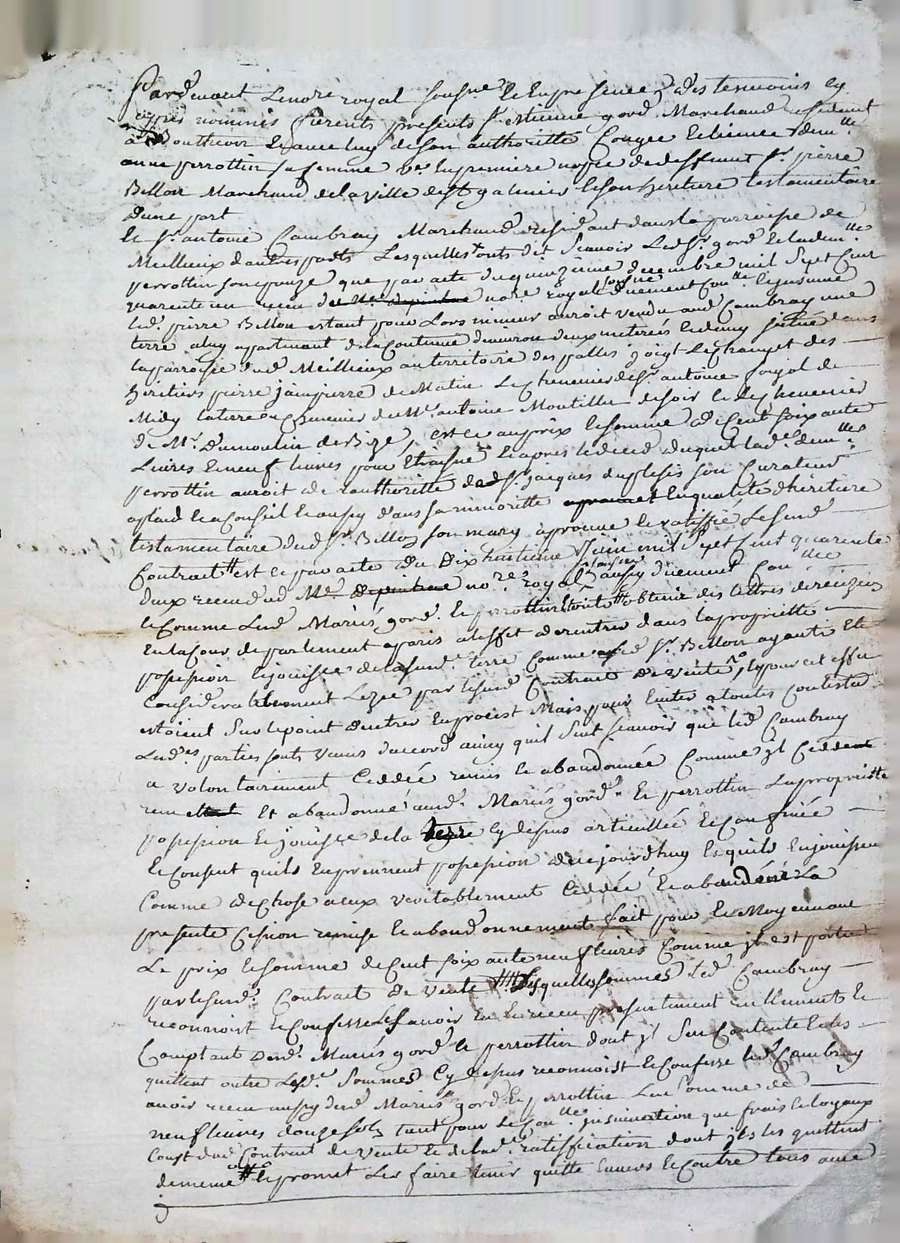 Pardevant Lenore royal sousné Et En presence des temoins cy
apprès nommés furents presents sr Etienne gord Marchand residant
a Bouthéon Lequel de son authorité Congee et licence demlle
anne perrottin sa femme ve En première nopce de deffunt sr pierre
Bellon Marchand de la ville de St galmier Et son heriture testamentaire
dune part
Et sr antoine Cambray Marchand residant dans la parroisse de
Meillieux dautres parts Lesquelles onts dit scavoir Led sr gord Et lad demlle
perrottin son epouze que par acte du quinzieme decembre mil sept Cent
quarente un receu de Me nore royal duement
led. pierre Bellon estant pour Lors mineur auroit vendu aud Cambray une
terre a luy appartenant de la Contenue denviron deux meterés Et demy située dans
la parroisse dud Meillieux au territoire des palles joigt Les des
héritiers pierre jean pierre de Matin Le chenevier de sr antoine de
Midy la terre ou chenevier de Me antoine Moutillu de soir Et Les chenevier
de Mr Dumoulin de Bize, est ce au prix Et somme de Cent soixante
Livres Et neuf Livres pour Etraine Et apres le deced duquel lad. demlle
perrottin auroit de Lauthorité de sr jacques duplessis son Curateur
Et Conseil Et aussy dans sa minorité En qualité dheriture
testamentaire dud sr Bellon son mary aprouvé Et ratiffié Le susd
Contrait est ce par acte du Dix huitieme juin mil sept Cent quarente
deux receu dud Me nore royal aussy duement
Et Comme Lesd Mariés gord Et perrottin obtenir des lettres de rescizion
En la Cour de parlement a paris a leffet de rentrer dans la propriette
possession Et jouissce de la susd. terre Comme led sr Bellon ayant Eté
Considerablement Lezée par le susd Contrait de vente, Et pour cet effet
etoient sur le point dentrer En procest Mais pour Eviter a toutes Contestes
Lesdes parties sonts venus daccord ainsy quil suit scavoir que led Cambray
a volontairement Ceddée remis Et abandonnée Comme jl Cedde
remet Et abandonne aud. Mariés gord Et perrottin La propriette
possession Et jouissce de la terre cy dessus articullée Et Confinée
Et Consent quils En prennent possession dece jourdhuy Et quils En jouissent
Comme de chose a eux veritablement Ceddée Et abandonné La
presente Cession remise Et abandonnement fait pour Et Moyennant
Le prix Et somme de Cent soixante neuf livres Comme jl est porté
par le susd. Contrait de vente Lesquelles sommes led Cambray
reconnoist Et Confesse avoir Eu Et receu presentement reellement Et
Comptant desd. Mariés gord Et perrottin dont jl sen Contente Et les
quittent outre Lesd. sommes cy dessus reconnoist Et Confesse led Cambray
avoir receu aussy desd Mariés gord Et perrottin La somme de
neuf livres douze sols tant pour Le insinuation que frais Et loyaux
Coust dud Contrait de vente Et de lad ratiffication dont jls les quittent
de meme Et promet Les faire tenir quitte Envers Et Contre tous avec